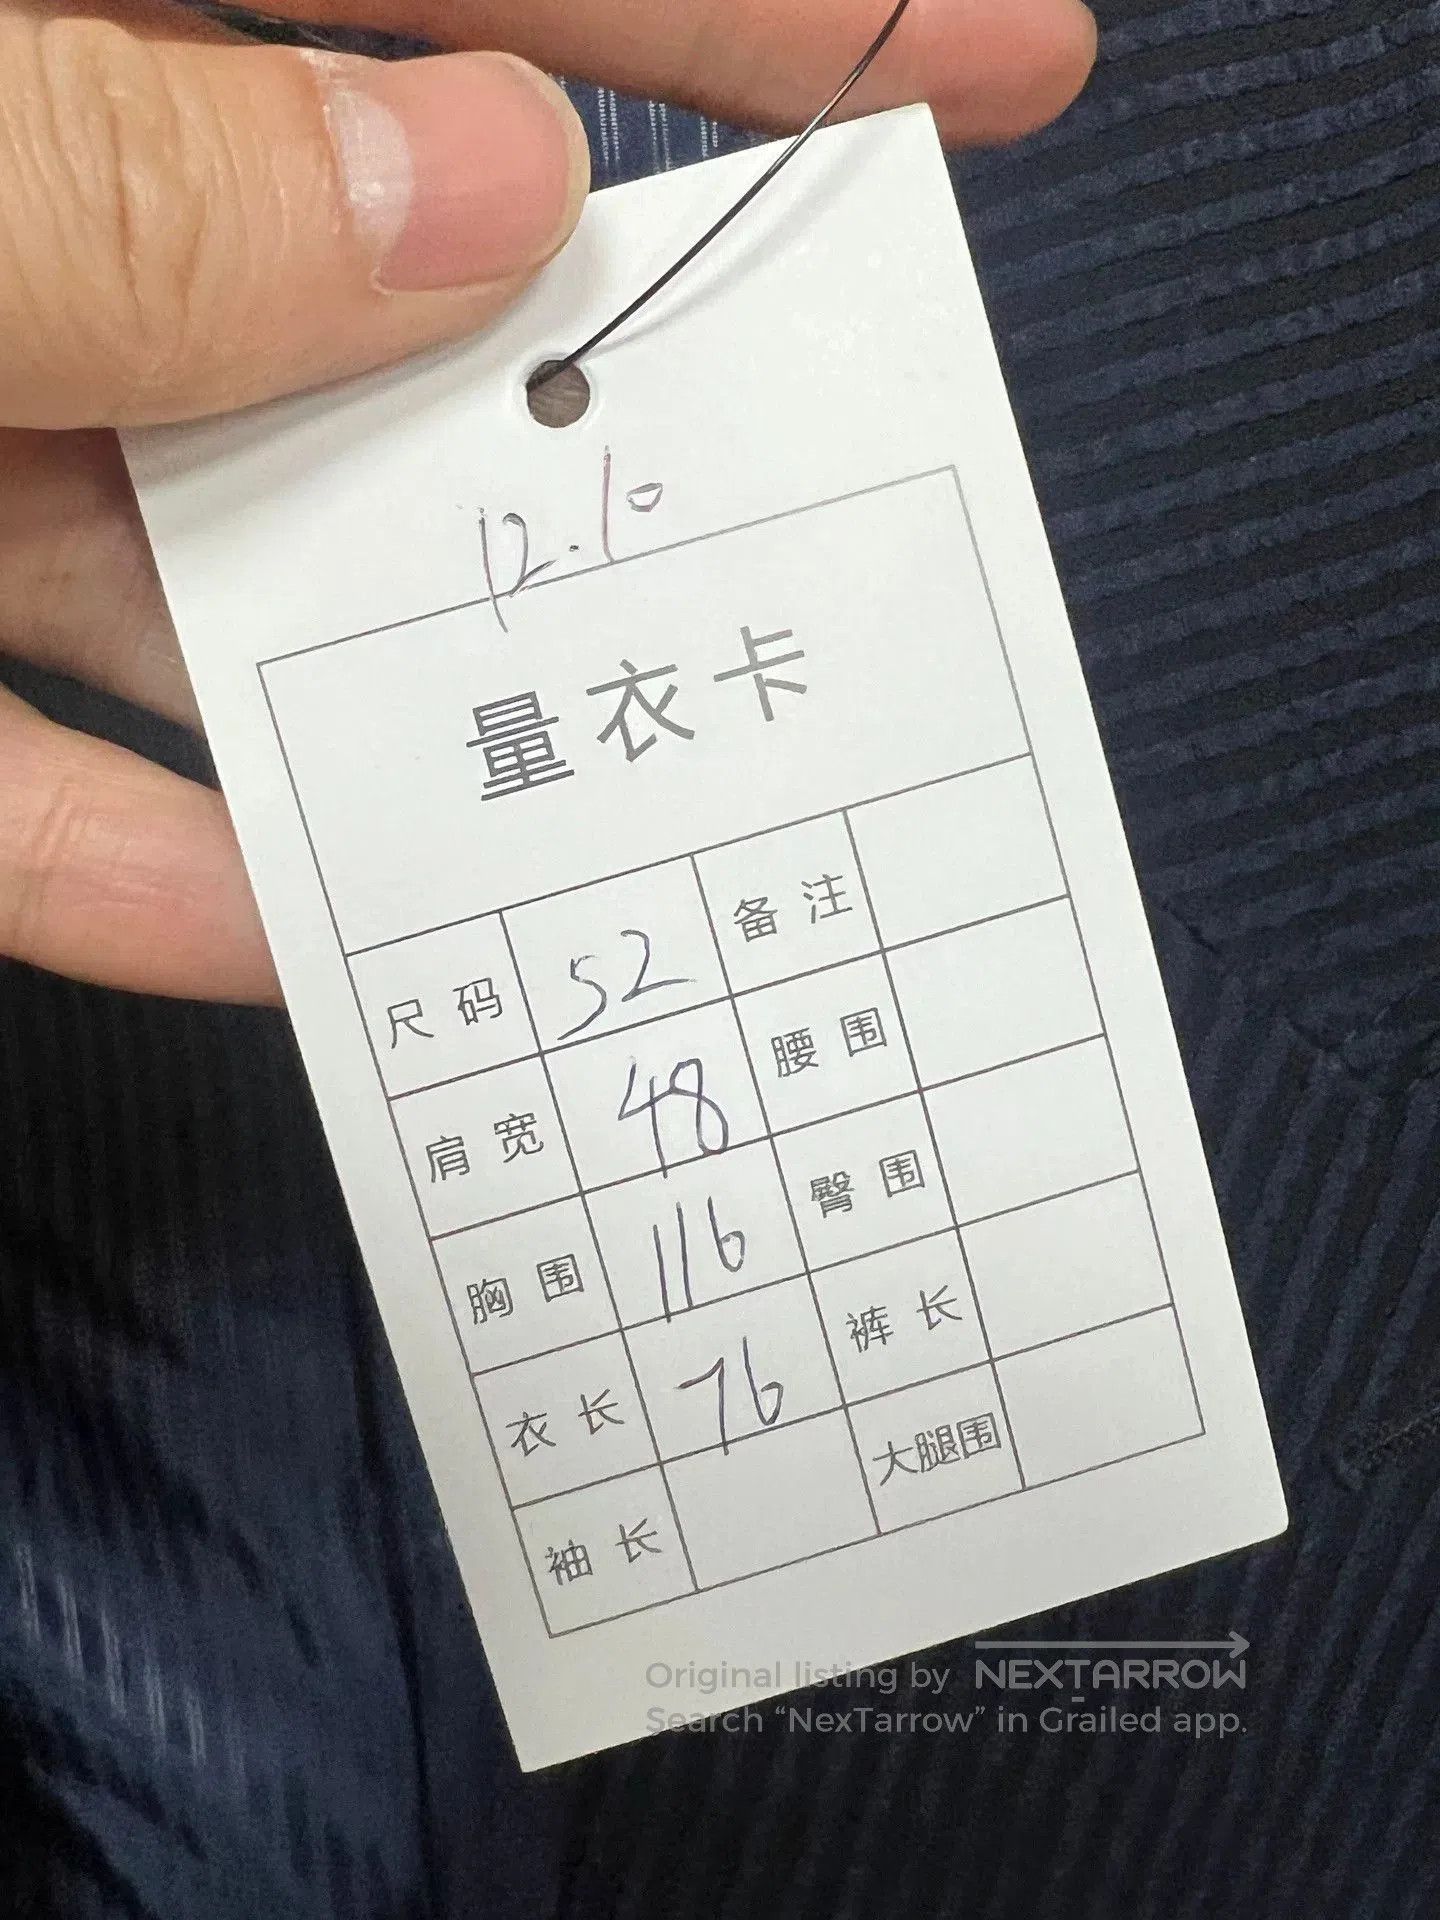 12.10
量衣卡
尺码 52 备注
肩宽 48 腰围
胸围 116 臀围
衣长 76 裤长
袖长 大腿围
Original listing by NEXTARROW
Search “NexTarrow” in Grailed app.